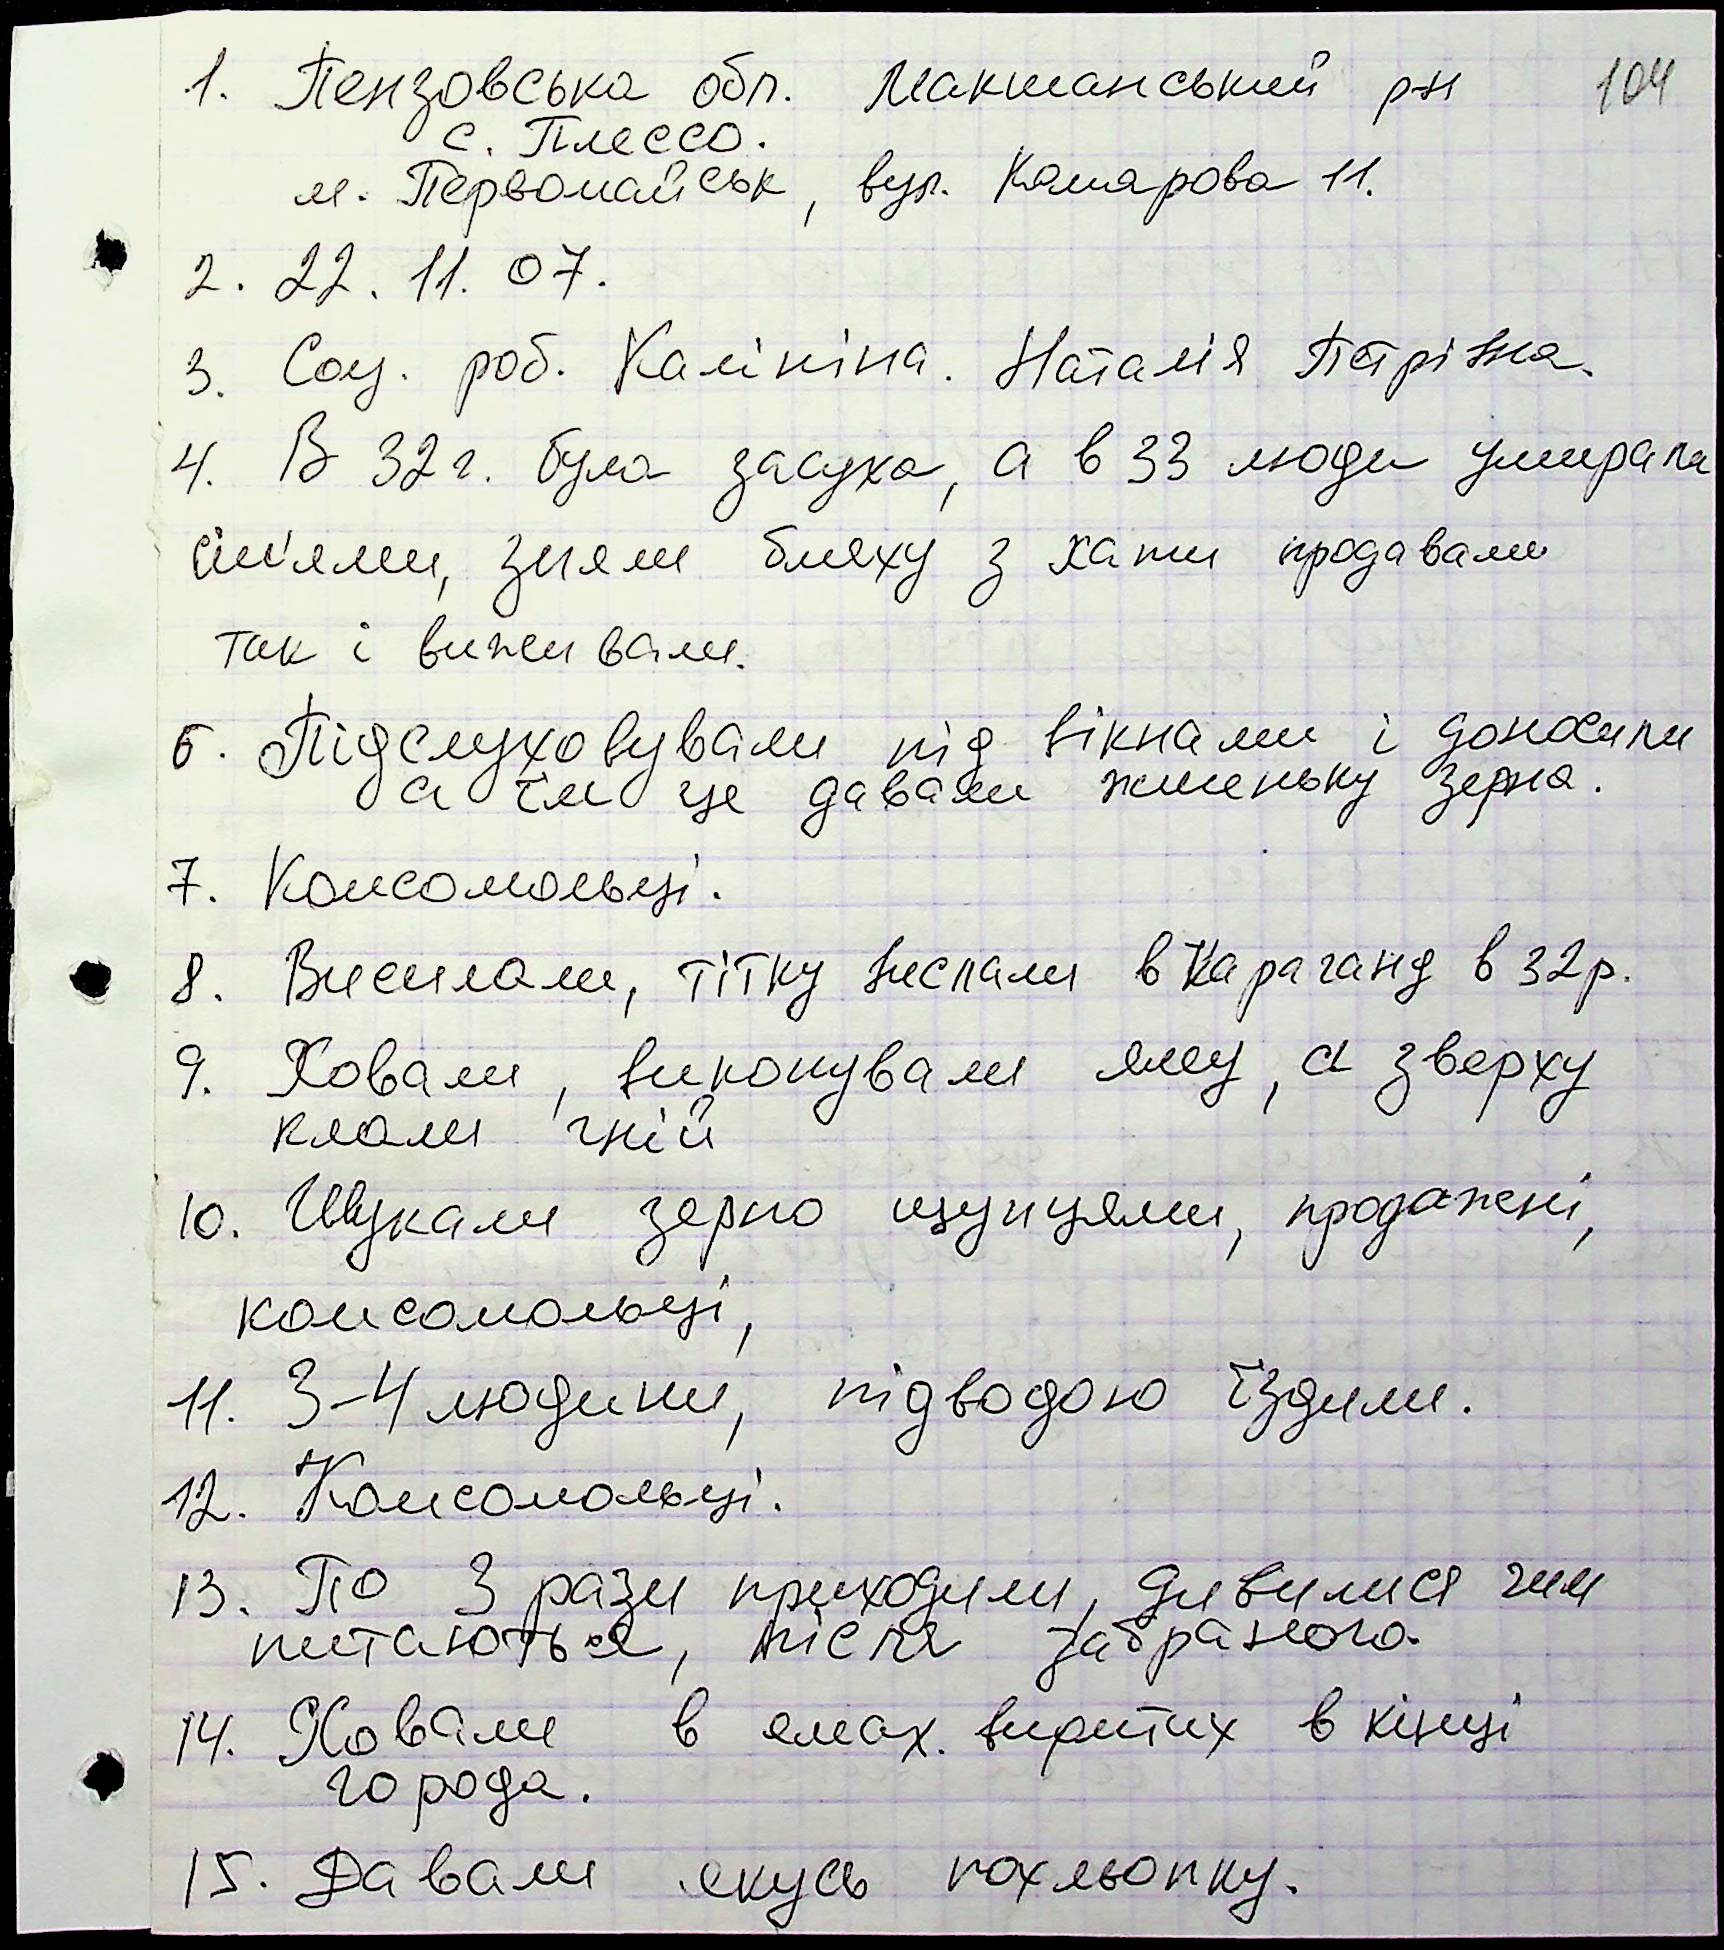 104
1. Пензовська обл. Макшанський рн
с. Плессо.
м. Первомайськ, вул. Камарова 11.
2. 22. 11. 07.
3. Соц. роб. Калініна. Наталія Петрівна.
4. В 32 г. була засуха, а в 33 люди умирали
сім'ями, зняли бляху з хати продавали
так і виживали.
6. Підслуховували під вікнами і доносили
а їм це давали жменьку зерна.
7. Комсомольці.
8. Висилали, тітку вислали в Караганд в 32 р.
9. Ховали, викопували яму, а зверху
клали гній
10. Шукали зерно щупцями, продажні,
комсомольці,
11. 3-4 людини, підводою їздили.
12. Комсомольці.
13. По 3 рази приходили, дивилися чим
питаються, після забраного.
14. Ховали в ямах. виритих в кінці
города.
15. Давали якусь похльопку.